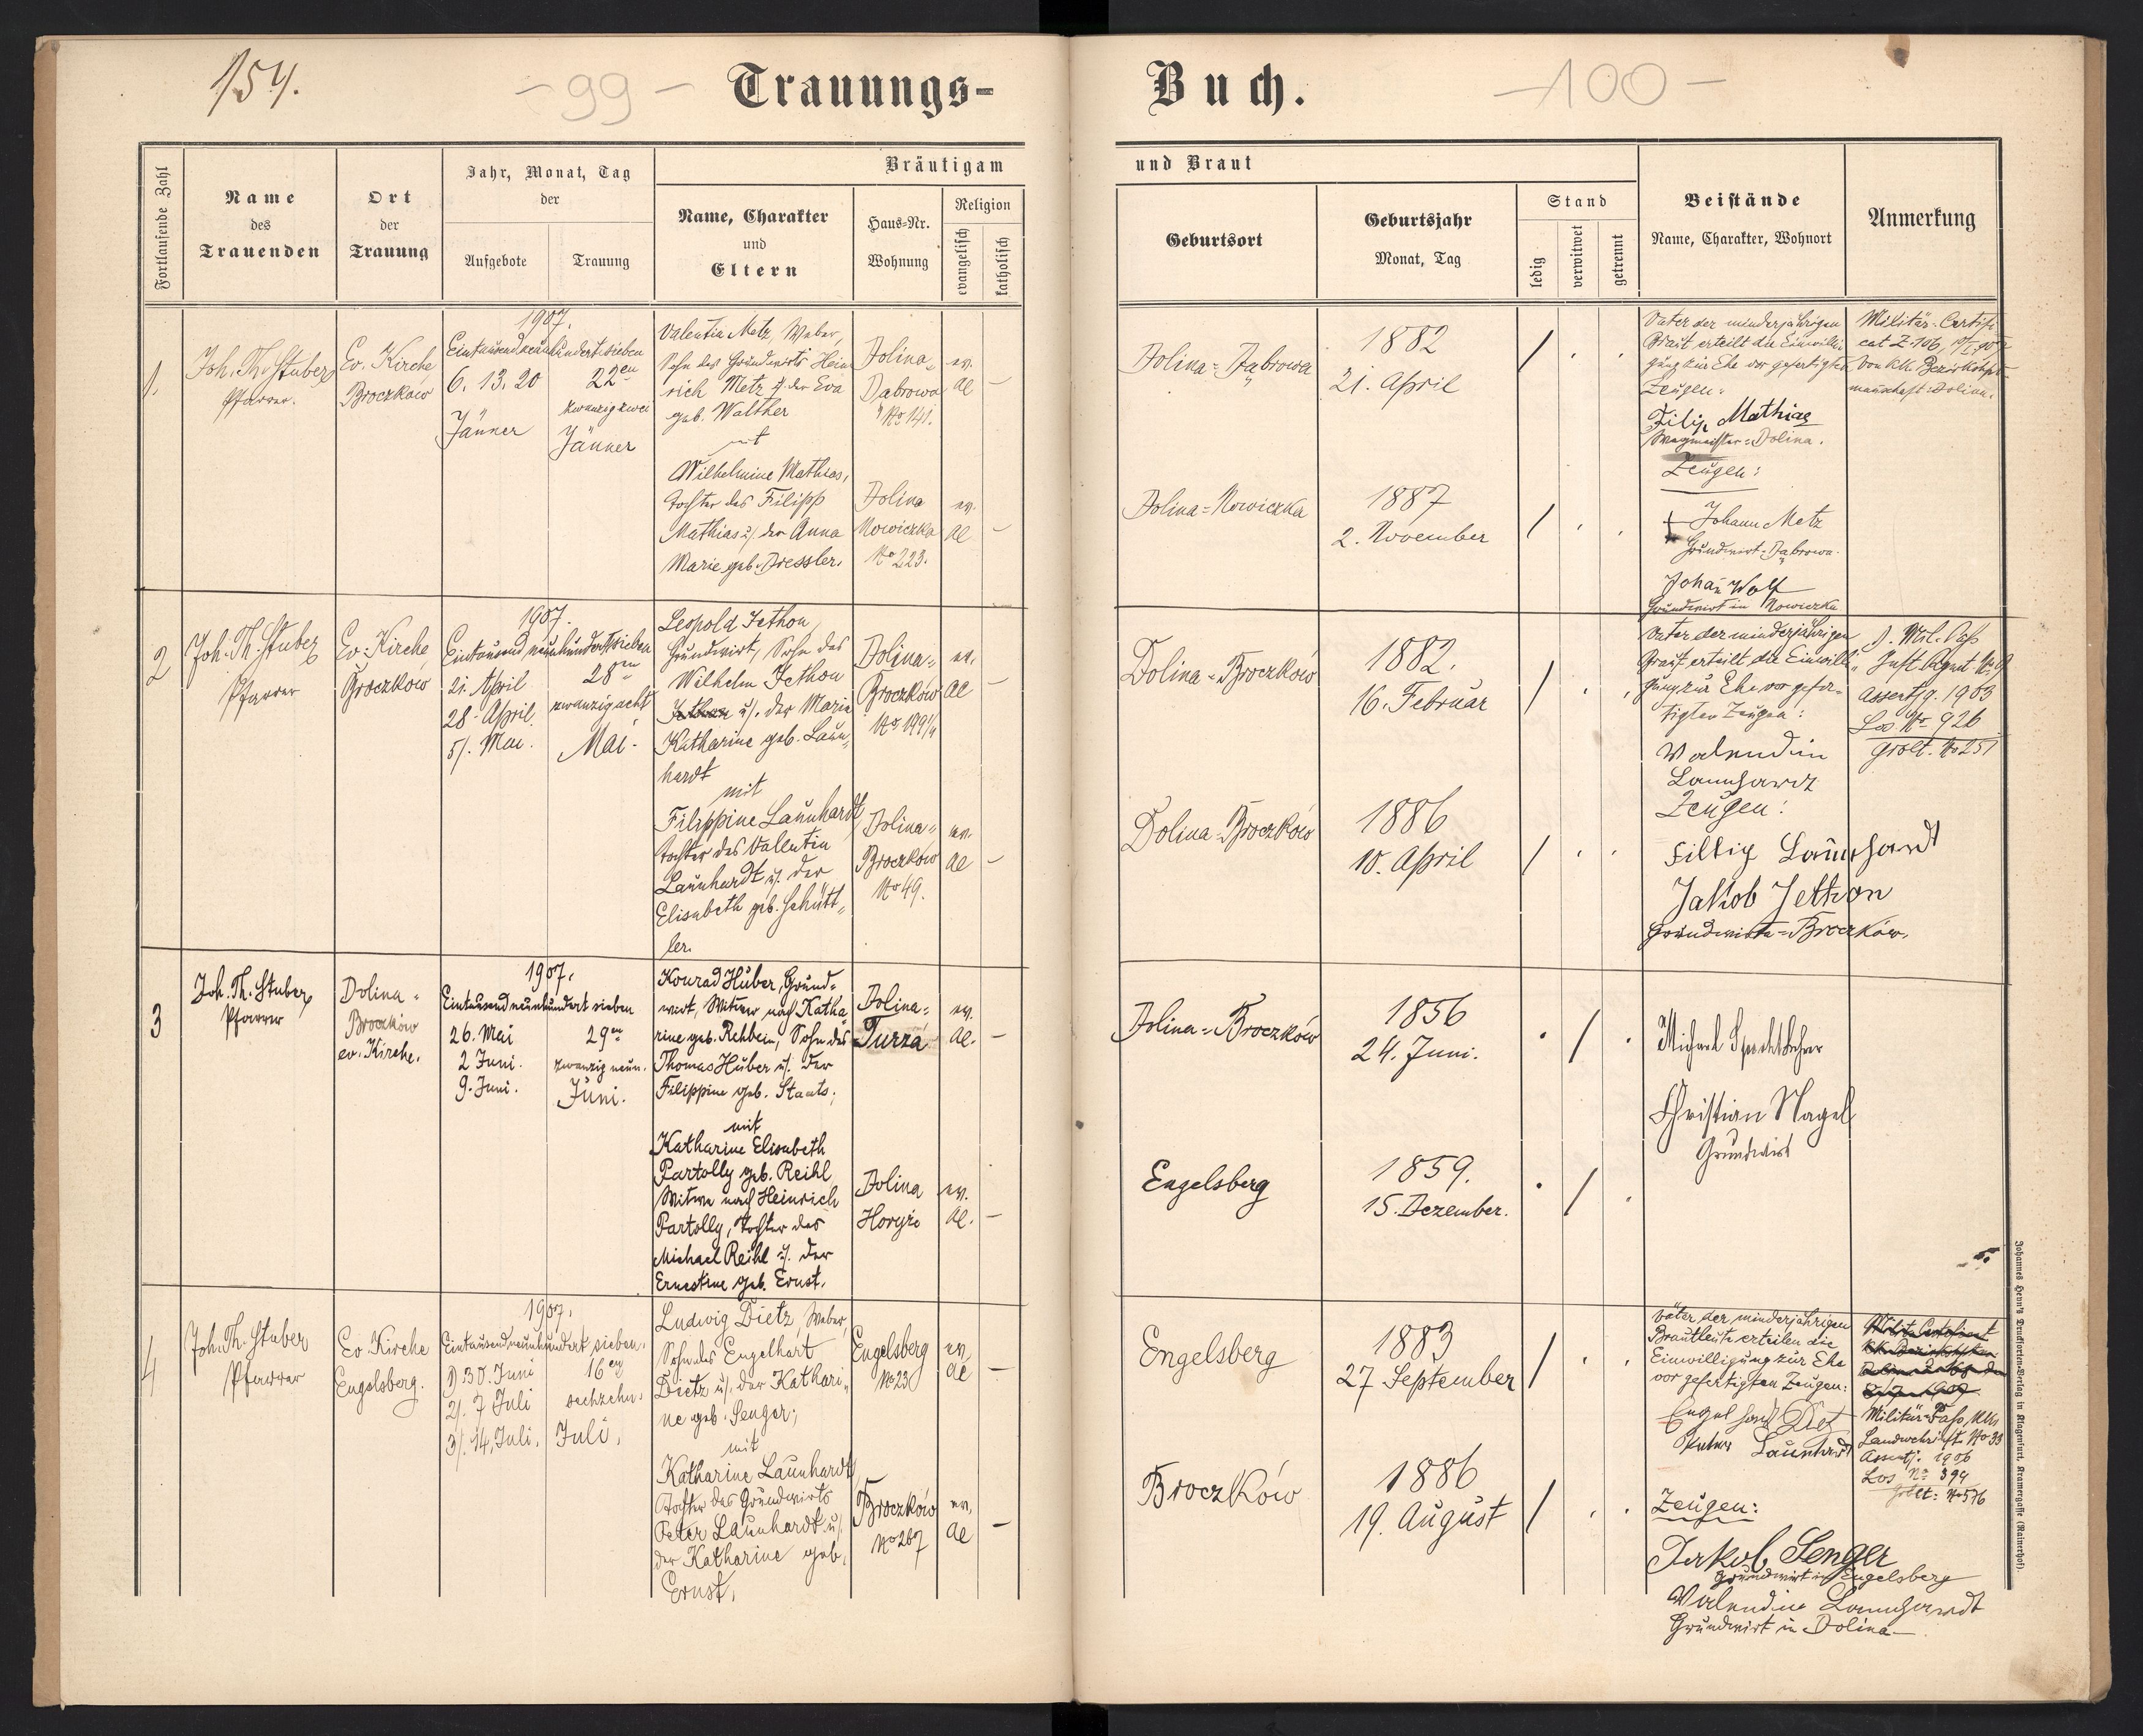 154.
- 99 -
Trauungs-
Buch.
- 100 -
Fortlaufende Zahl
Name
des
Trauenden
Ort
der
Trauung
Jahr, Monat, Tag
der
Aufgebote
Trauung
Bräutigam
Name, Charakter
und
Eltern
Haus-Nr.
Wohnung
Religion
evangelisch
katholisch
und Braut
Geburtsort
Geburtsjahr
Monat, Tag
Stand
ledig
verwitwet
getrennt
Beistände
Name, Charakter, Wohnort
Anmerkung
1.
Joh. Th. Stuber
Pfarrer.
Ev. Kirche
Broczków
1907.
Eintausendneunhundertsieben
6. 13. 20
Jänner
22en
zwanzigzwei
Jänner
Valentin Metz, Weber,
Sohn des Grundwirts Hein
rich Metz u. der Eva
geb. Walther
mit
Wilhelmine Mathias,
Tochter des Filipp
Mathias u. der Anna
Marie geb. Dressler.
Dolina-
Dąbrowa
No 141.
ev.
AC
–
Dolina
Nowiczka
No 223.
ev.
AC
–
Dolina-Dąbrowa
1882
21. April
/
Dolina-Nowiczka
1887
2. November
/
Vater der minderjährigen
Braut erteilt die Einwilli
gung zur Ehe vor gefertigten
Zeugen:
Filip Mathias
Wegmeister-Dolina.
Zeugen:
Johann Metz
Grundwirt-Dąbrowa.
Johan Wolf
Grundwirt in Nowiczka
Militär-Certifi
cat Z. 106
von kk. Bezirkshpt-
mannschaft-Dolina.
2
Joh. Th. Stuber
Pfarrer
Ev. Kirche,
Broczkow
1907.
Eintausend neunhundertsieben
21. April
28. April
5/. Mai.
28en
zwanzigacht
Mai.
Leopold Jethon,
Grundwirt, Sohn des
Wilhelm Jethon
u/. der Marie
Katharine geb. Laun-
hardt
mit
Filippine Launhardt
Tochter des Vallentin
Launhardt u/. der
Elisabeth geb. Schütt-
ler.
Dolina-
Broczków
No 199 1/4
ev.
AC
–
Dolina-
Broczków
No 49.
ev.
AC
–
Dolina-Broczków
1882.
16. Februar
/
Dolina-Broczków
1886
10. April
/
Vater der minderjährigen
Braut erteilt die Einwilli-
gung zur Ehe vor gefer-
tigten Zeugen:
Walendin
Launhardt
Zeugen:
Fillip Launhardt
Jakob Jethon
Grundwirte-Broczków.
Mil. Pass
Inft. Regmt. No 9
Assentjg. 1903
Los No 926
Grblt. No 251
3
Joh. Th. Stuber
Pfarrer
Dolina-
Broczków
ev. Kirche.
1907.
Eintausendneunhundert sieben
26. Mai
2 Juni.
9. Juni.
29en
zwanzig neun.
Juni.
Konrad Huber, Grund-
wirt, Witwer nach Katha
rine geb. Rehbein, Sohn des
Thomas Huber u/. der
Filippine geb. Staats;
mit
Katharine Elisabeth
Partolly geb. Reihl
Witwe nach Heinrich
Partolly, Tochter des
Michael Reihl u/. der
Ernestine geb. Ernst.
Dolina-
Turza
ev.
AC.
–
Dolina
Horyże
ev.
AC.
–
Dolina-Broczków
1856
24. Juni.
/
Engelsberg
1859.
15. Dezember.
/
Michael Specht Lehrer
Christian Nagel
Grundwirt
4
Joh. Th. Stuber
Pfarrer
Ev. Kirche
Engelsberg.
1907.
Eintausendneunhundert sieben.
1) 30. Juni
2/. 7 Juli
3/. 14. Juli.
16en
sechzehn.
Juli.
Ludwig Dietz, Weber,
Sohn des Engelhart
Dietz u/. der Kathari-
ne geb. Senger;
mit
Katharine Launhardt,
Tochter des Grundwirts
Peter Launhardt u/.
der Katharine geb.
Ernst.
Engelsberg
No 23
ev.
AC
–
Broczków
No 267
ev.
AC
–
Engelsberg
1883
27 September
/
Broczków
1886
19. August
/
Väter der minderjährigen
Brautleute erteilen die
Einwilligung zur Ehe
vor gefertigten Zeugen:
Engelhard Diet
Launhardt
Zeugen:
Jakob Senger
Grundwirt in Engelsberg
Walendin Launhardt
Grundwirt in Dolina
Militär-Pass, kk.
Landwehr Ift. No 33
Assentj. 1906
Los No 394
Grblt: No 576
Johannes Heyn's Drucksorten-Verlag in Klagenfurt, Kramergasse (Rainerhof).